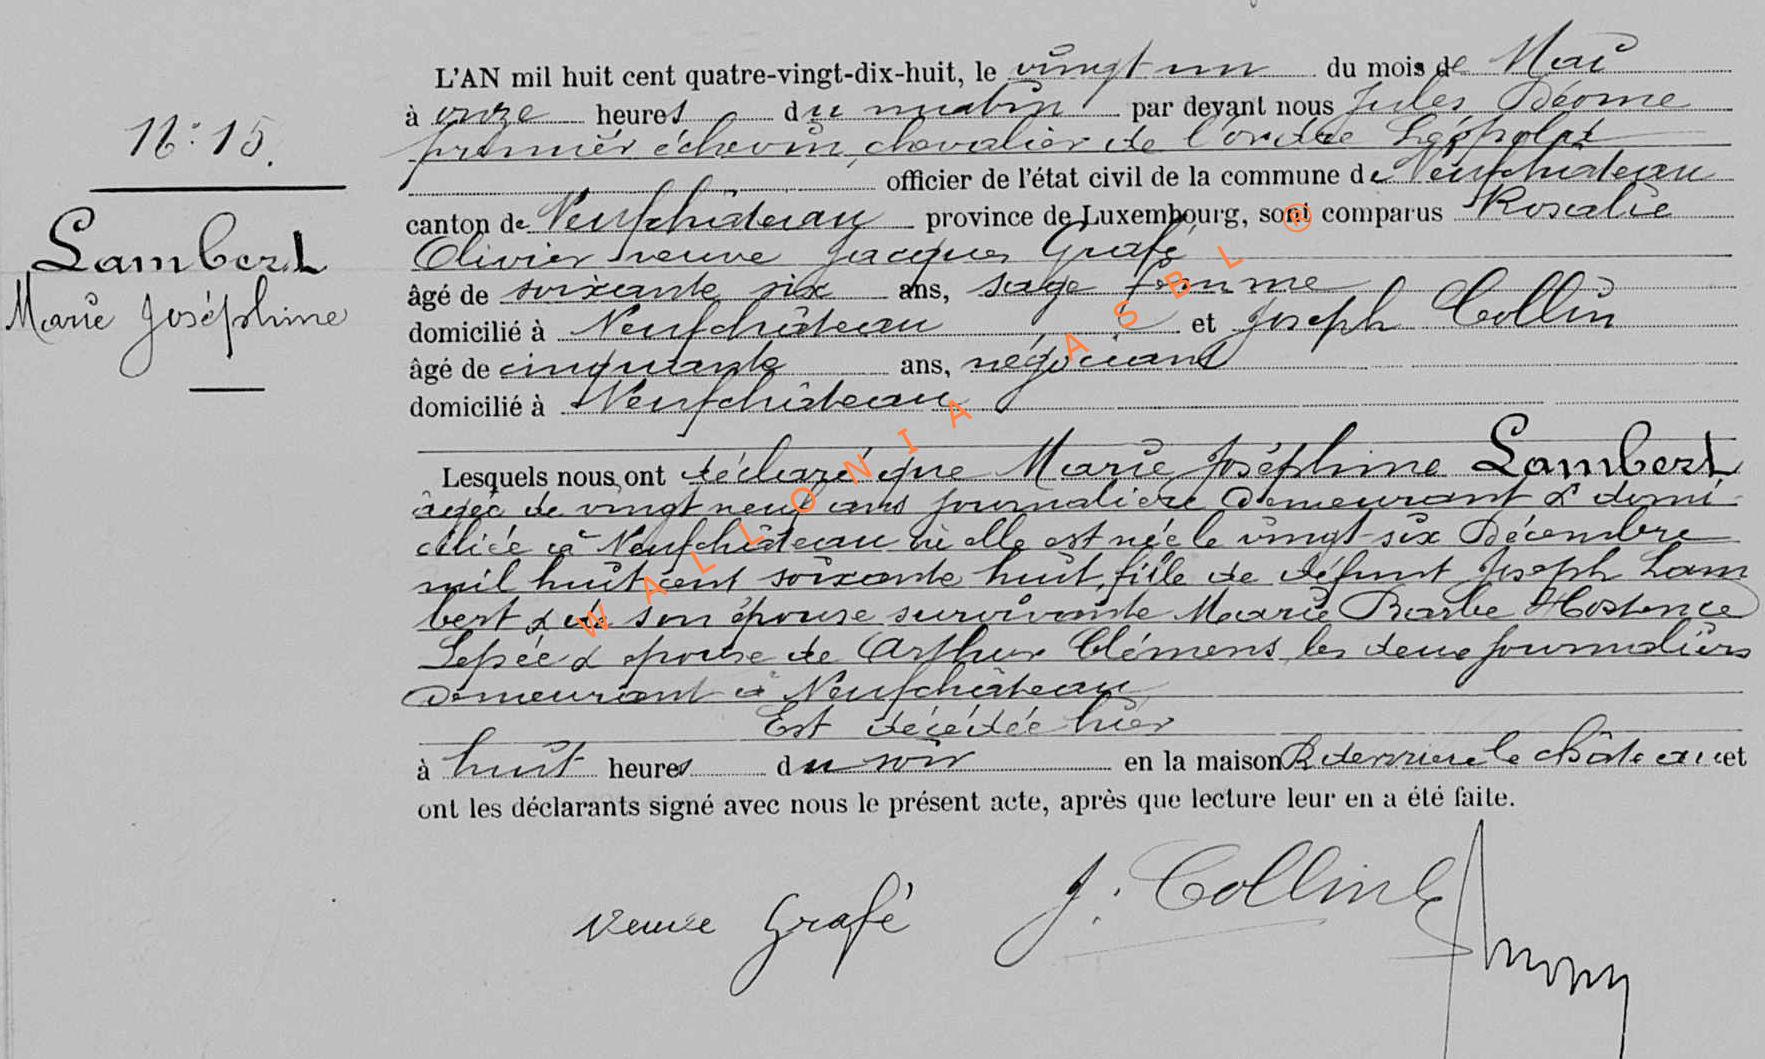 N: 15.
Lambert
Marie Joséphine
L'AN mil huit cent quatre-vingt-dix-huit, le vingt un du mois de Mai
à onze heures du matin par devant nous Jules Déome
premier échevin, chevalier de l'ordre Léopold
officier de l'état civil de la commune de Neufchâteau
canton de Neufchâteau province de Luxembourg, sont comparus Rosalie
Olivier veuve Jacques Grafé
âgé de soixante six ans, sage femme
domicilié à Neufchâteau et Joseph Collin
âgé de cinquante ans, négociant
domicilié à Neufchâteau
Lesquels nous ont déclaré que Marie Joséphine Lambert
âgée de vingt neuf ans journalière demeurant & domi
ciliée à Neufchâteau où elle est née le vingt-six Décembre
mil huit cent soixante huit, fille de défunt Joseph Lam
bert & de son épouse survivante Marie Barbe Hostence
Lepée & épouse de Arthur Clémens, les deux journaliers
demeurant à Neufchâteau
Est décédée hier
à huit heures du soir en la maison R. derrière le château et
ont les déclarants signé avec nous le présent acte, après que lecture leur en a été faite.
veuve Grafé J. Collin
WALLONIA ASBL ®